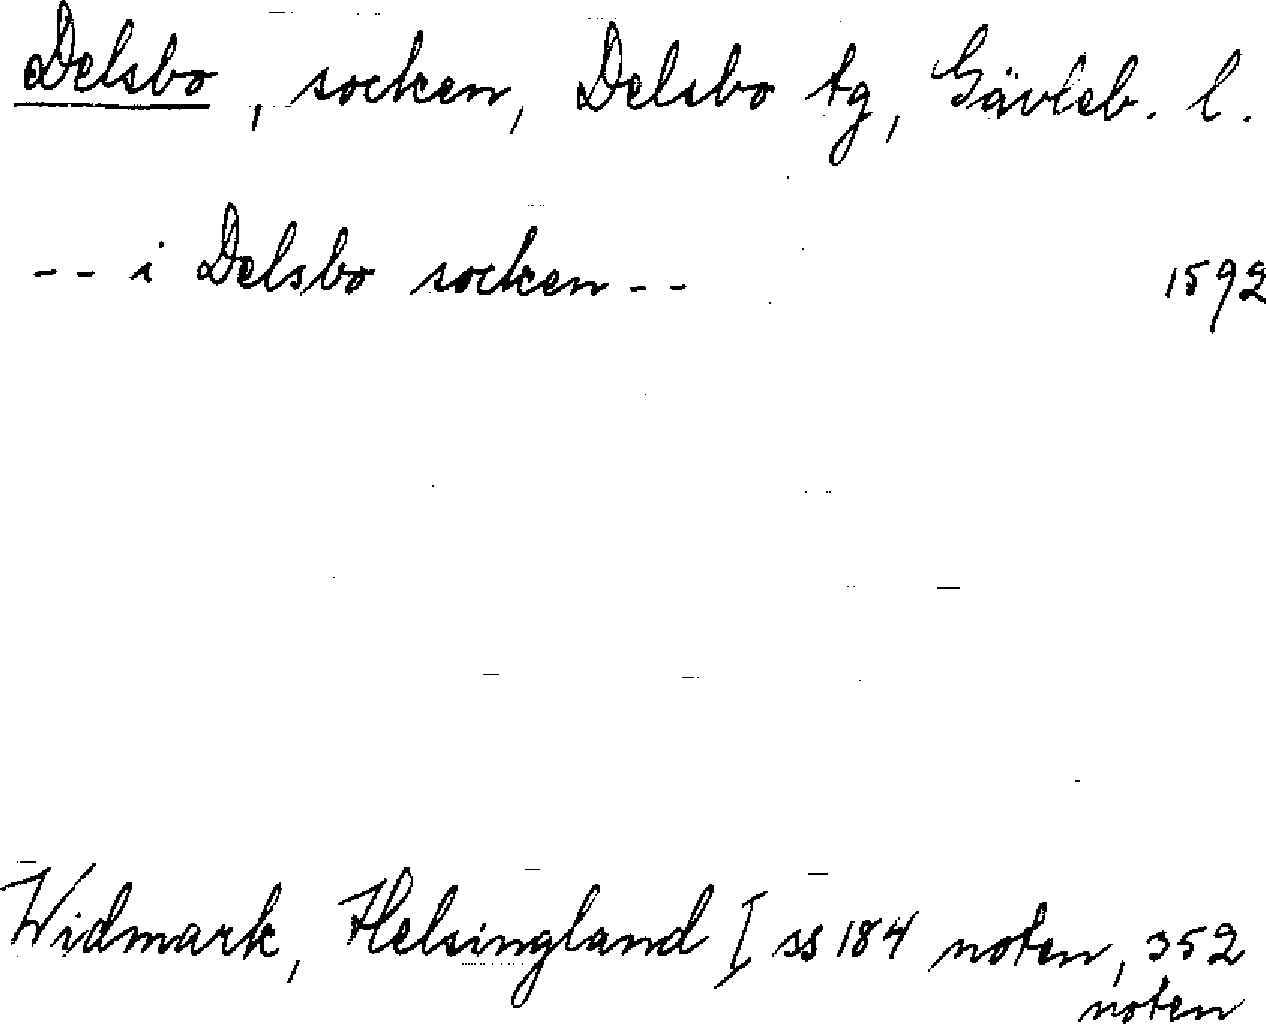 Delsbo, socken, Delsbo tg, Gävleb. l.
-- i Delsbo socken -- 1592
Widmark, Helsingland I ss 184 noten, 352
noten